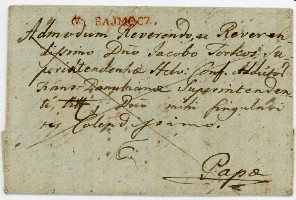 V. BAJMÓCZ.
Admodum Reverendo, ac Reveren
dissimo Dno Jacobo Torkos, Su
perintendentiæ Helv. Conf. Addictor
Trans-Danubianæ Superintenden
ti, Dno mihi singulari
ter Colendissimo.
Papæ